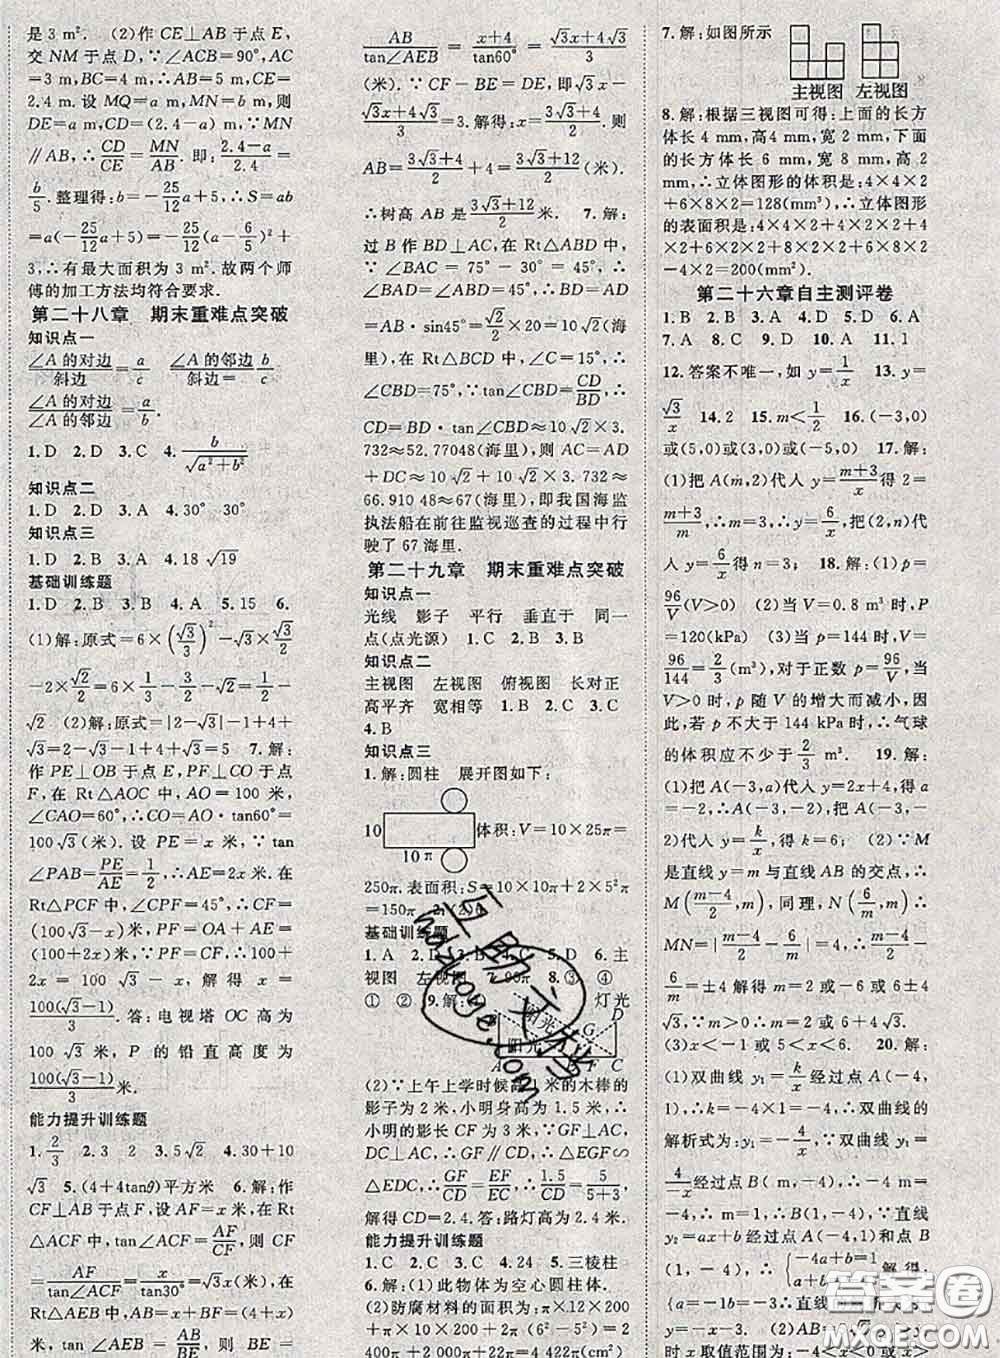 是3 m². (2)作CE⊥AB于点E,
交NM于点D,∵∠ACB=90°,AC
=3 m,BC=4 m,∴AB=5 m,CE=
2.4 m. 设 MQ=a m,MN=b m,则
DE=a m,CD=(2.4-a)m,∵MN
∥AB,∴CD/CE=MN/AB. 即:(2.4-a)/2.4=
b/5. 整理得:b=-25/12a+5,∴S=ab
=a(-25/12a+5)=-25/12(a-6/5)²+
3,∴有最大面积为3 m². 故两个师
傅的加工方法均符合要求.
第二十八章 期末重难点突破
知识点一
∠A的对边/斜边=a/c ∠A的邻边/斜边 b/c
∠A的对边/∠A的邻边=a/b.
1. D 2. D 3. C 4. b/√(a²+b²)
知识点二
1. D 2. D 3. A 4. 30° 30°
知识点三
1. D 2. B 3. A 4. 18 √19
基础训练题
1. D 2. B 3. B 4. A 5. 15 6.
(1)解:原式=6×(√3/3)²-√3×√3/2
-2×√2/2=6×1/3-3/2-√2=1/2-
√2 (2)解:原式=|2-√3|-√3+4
√3=2-√3-√3+4√3=2+2√3 7.解:
作PE⊥OB于点E,PF⊥CO于点
F,在Rt△AOC中,AO=100米,
∠CAO=60°,∴CO=AO·tan60°
=100√3(米). 设PE=x米,∵tan
∠PAB=PE/AE=1/2,∴AE=2x. 在
Rt△PCF中,∠CPF=45°,CF=
(100√3-x)米,PF=OA+AE=
(100+2x)米,∵PF=CF,∴100+
2x=100√3-x,解得x=
100(√3-1)/3. 答:电视塔OC高为
100√3米,P的铅直高度为
100(√3-1)/3米.
能力提升训练题
1. 2/3 2. 3 2 3. 5√2 4. 30+10
√3 5. (4+4tanθ)平方米 6.解:作
CF⊥AB于点F,设AF=x米,在
Rt△ACF中,tan∠ACF=AF/CF,则CF=
AF/tan∠ACF=x/tan30°=√3x(米),在
Rt△AEB中,AB=x+4(米),在
米,tan∠AEB=AB/BE,则BE=
AB/tan∠AEB=(x+4)/tan60°=(√3x+4√3)/3
(米). ∵CF-BE=DE,即√3x-
(√3x+4√3)/3=3. 解得:x=(3√3+4)/2. 则
AB=(3√3+4)/2+4=(3√3+12)/2(米).
∴树高AB是(3√3+12)/2米. 7.解:
过B作BD⊥AC,在Rt△ABD中,
∵∠BAC=75°-30°=45°,∴BD=AD=
AB·sin45°=√2/2×20=10√2(海
里),在Rt△BCD中,∠C=15°,
∠CBD=75°,∵tan∠CBD=CD/BD,∴
CD=BD·tan∠CBD≈10√2×3.
732≈52.77048(海里),则AC=AD
+DC≈10√2+10√2×3.732≈
66.91048≈67(海里),即我国海监
执法船在前往监视巡查的过程中行
驶了67海里.
第二十九章 期末重难点突破
知识点一
光线 影子 平行 垂直于 同一
点(点光源) 1. C 2. B 3. B
知识点二
主视图 左视图 俯视图 长对正
高平齐 宽相等 1. B 2. C 3. C
4. B
知识点三
1.解:圆柱 展开图如下:
10 体积:V=10×25π=
10π
250π. 表面积:S=10×10π+2×5²π
=150π
基础训练题
1. A 2. D 3. B 4. C 5. D 6. 主
视图 左视图 7. 90π 8. ③ ④
① ② 9. 解: 灯光
阳光 G D
阳光
A C
(2)∵上午上学时候高1米的木棒的
影子为2米,小明身高为1.5米,∴
小明的影长CF为3米,∵GF⊥AC,
DC⊥AC,∴GF∥CD,∴△EGF∽
△EDC,∴GF/CD=EF/EC,∴1.5/CD=5/(5+3),
解得CD=2.4. 答:路灯高为2.4米.
能力提升训练题
1. C 2. C 3. C 4. 24 5. 三棱柱
6. 解:(1)此物体为空心圆柱体.
(2)防腐材料的面积为π×12×200
7.解:如图所示
主视图 左视图
8. 解:根据三视图可得:上面的长方
体长4 mm,高4 mm,宽2 mm,下面
的长方体长6 mm,宽8 mm,高2
mm,∴立体图形的体积是:4×4×2
+6×8×2=128(mm³),∴立体图形
的表面积是:4×4×2+4×2×2+
4×2+6×2×2+8×2×2+6×8×2
-4×2=200(mm²).
第二十六章自主测评卷
1. B 2. B 3. C 4. D 5. D 6. A
7. A 8. D 9. D 10. A 11. 1
12. 答案不唯一,如y=1/x 13. y=
√3/x 14. 2 15. m<1/2 16. (-3,0)
或(5,0)或(3,0)或(-5,0) 17. 解:
(1)把A(m,2)代入y=(m+3)/x得2=
(m+3)/m,∴m=3,∴y=6/x,把(2,n)代
入y=6/x得n=3; 18. 解:(1)p=
96/V(V>0) (2)当V=0.8 m³时,P
=120(kPa) (3)当p=144时,V=
96/144=2/3(m³),对于正数p=96/V,当V
>0时,p随V的增大而减小,因
此,若要p不大于144 kPa时,∴气球
的体积应不少于2/3 m³. 19. 解:
(1)把A(-3,a)代入y=x+1,得a
=-2,∴A(-3,-2),把A(-3,-
2)代入y=k/x,得k=6; (2)∵M
是直线y=m与直线AB的交点,
∴M((m-4)/2,m),同理,N(6/m,m),∴
MN=|(m-4)/2-6/m|=4,∴(m-4)/2-
6/m=±4,解得m=2或m=-6或m=6±4√3,
∵m>0,∴m=2或m=6+4√3;
(3)x<-1或5<x<6. 20. 解:
(1)∵双曲线y₁=k/x经过点A(-1,
4),∴k=-1×4=-4,∴双曲线的
解析式为:y₁=-4/x,∵双曲线y₁=
-4/x经过点B(m,-4),∴-4m=
-4,m=1,∴B(1,-4),∵直线
y₂=ax+b经过点A(-1,4)和点B
(1,-4),∴{-a+b=4 a+b=-4 解得: